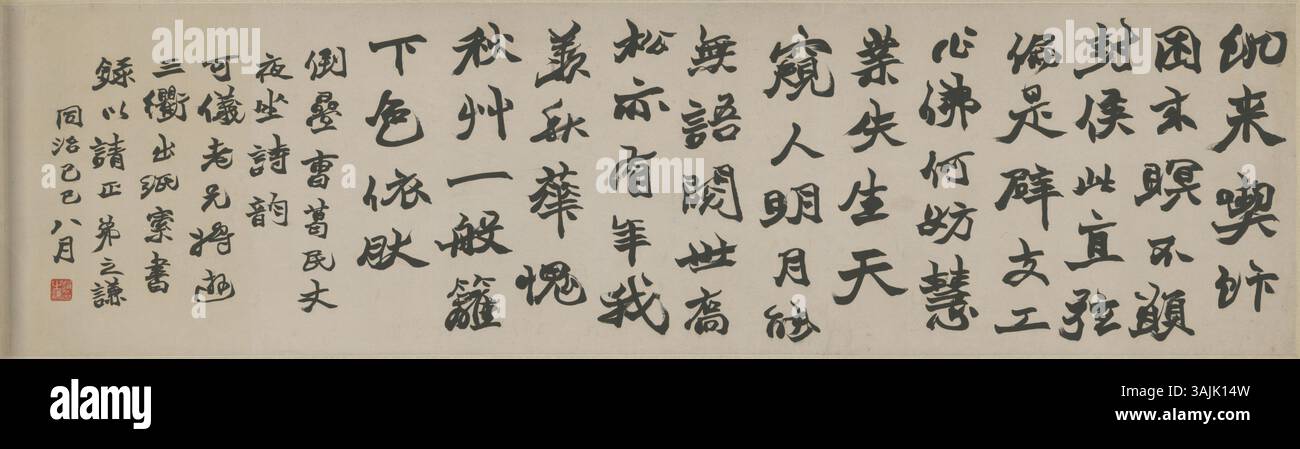 飢来喫飯
困来瞑不願
封侯此直弦
偏是辟支工
心佛何妨慧
業失生天
窺人明月能
無語閱世喬
松亦有年我
羨秋華愧
秋艸一般籬
下色依肰
倒疊曹葛民丈
夜坐詩韵
可儀老兄將游
三衢出紙索書
録以請正弟之謙
同治己巳八月
alamy
Image ID: 3AJK14W
www.alamy.com